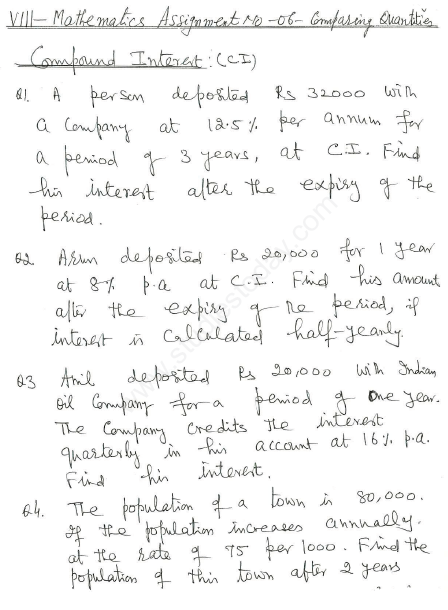 VIII - Mathematics Assignment No - 06 - Comparing Quantities
Compound Interest : (CI)
Q1. A person deposited Rs 32000 with
a Company at 12.5% per annum for
a period of 3 years, at C.I. Find
his interest after the expiry of the
period.
Q2 Arun deposited Rs 20,000 for 1 year
at 8% p.a at C.I. Find his amount
after the expiry of the period, if
interest is Calculated half-yearly.
Q3 Anil deposited Rs 20,000 with Indian
Oil Company for a period of one year.
The Company credits the interest
quarterly in his account at 16% p.a.
Find his interest.
Q4. The population of a town is 80,000.
If the population increases annually.
at the rate of 75 per 1000. Find the
population of this town after 2 years
www.studiestoday.com